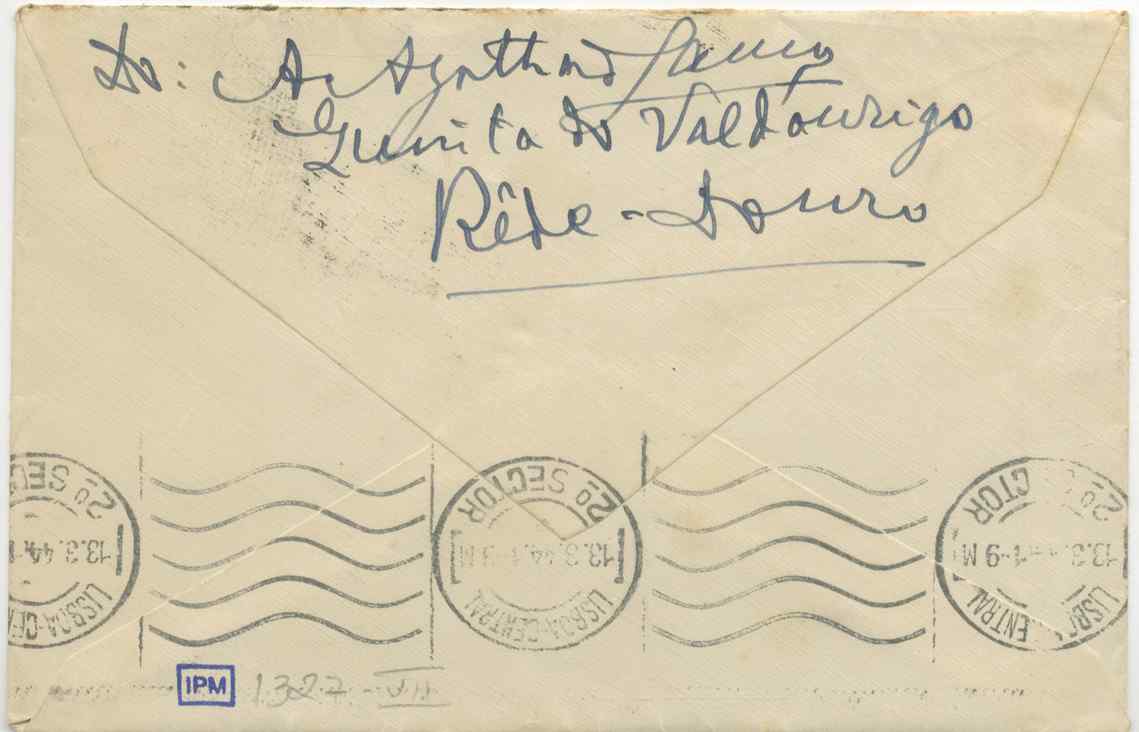 Do: A. Agatha de Lacerda
Quinta do Valdourigo
Rêde - Douro
2º SECTOR
13.3.44.1
LISBOA-CE
2º SECTOR
13.3.44.1-9 M
LISBOA-CENTRAL
2º CTOR
13.3. 1-9 M
LISBO ENTRAL
IPM 1.327 - VIII